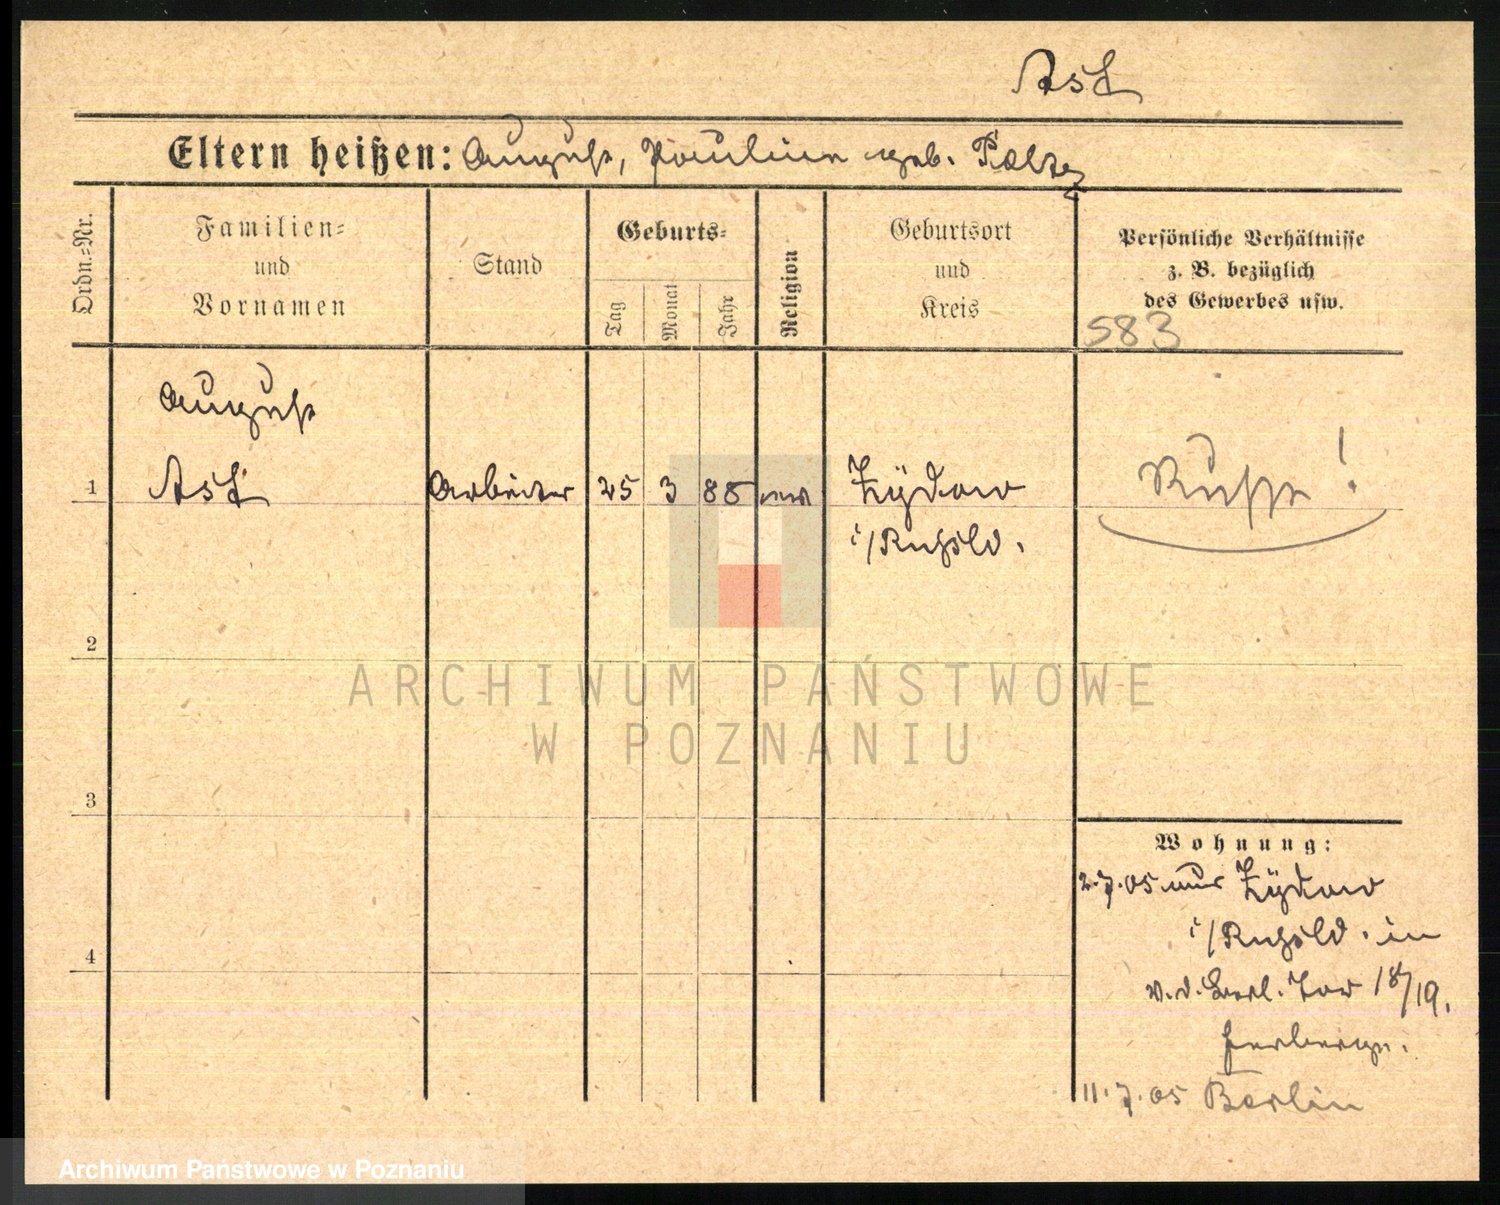 Ast
Eltern heißen: August, Pauline geb. Palzer
Ordn.-Nr.
Familien-
und
Vornamen
Stand
Geburts-
Tag
Monat
Jahr
Religion
Geburtsort
und
Kreis
Persönliche Verhältnisse
z. B. bezüglich
des Gewerbes usw.
583
August
1 Ast Arbeiter 25 3 88 Zÿdow Russe!
i/Rußld.
2
ARCHIWUM PAŃSTWOWE
W POZNANIU
3
Wohnung:
2.7.05 aus Zÿdow
i/Rußld. in
v. d. Berl. Tor 18/19.
Herberge.
4
11.7.05 Berlin
Archiwum Państwowe w Poznaniu